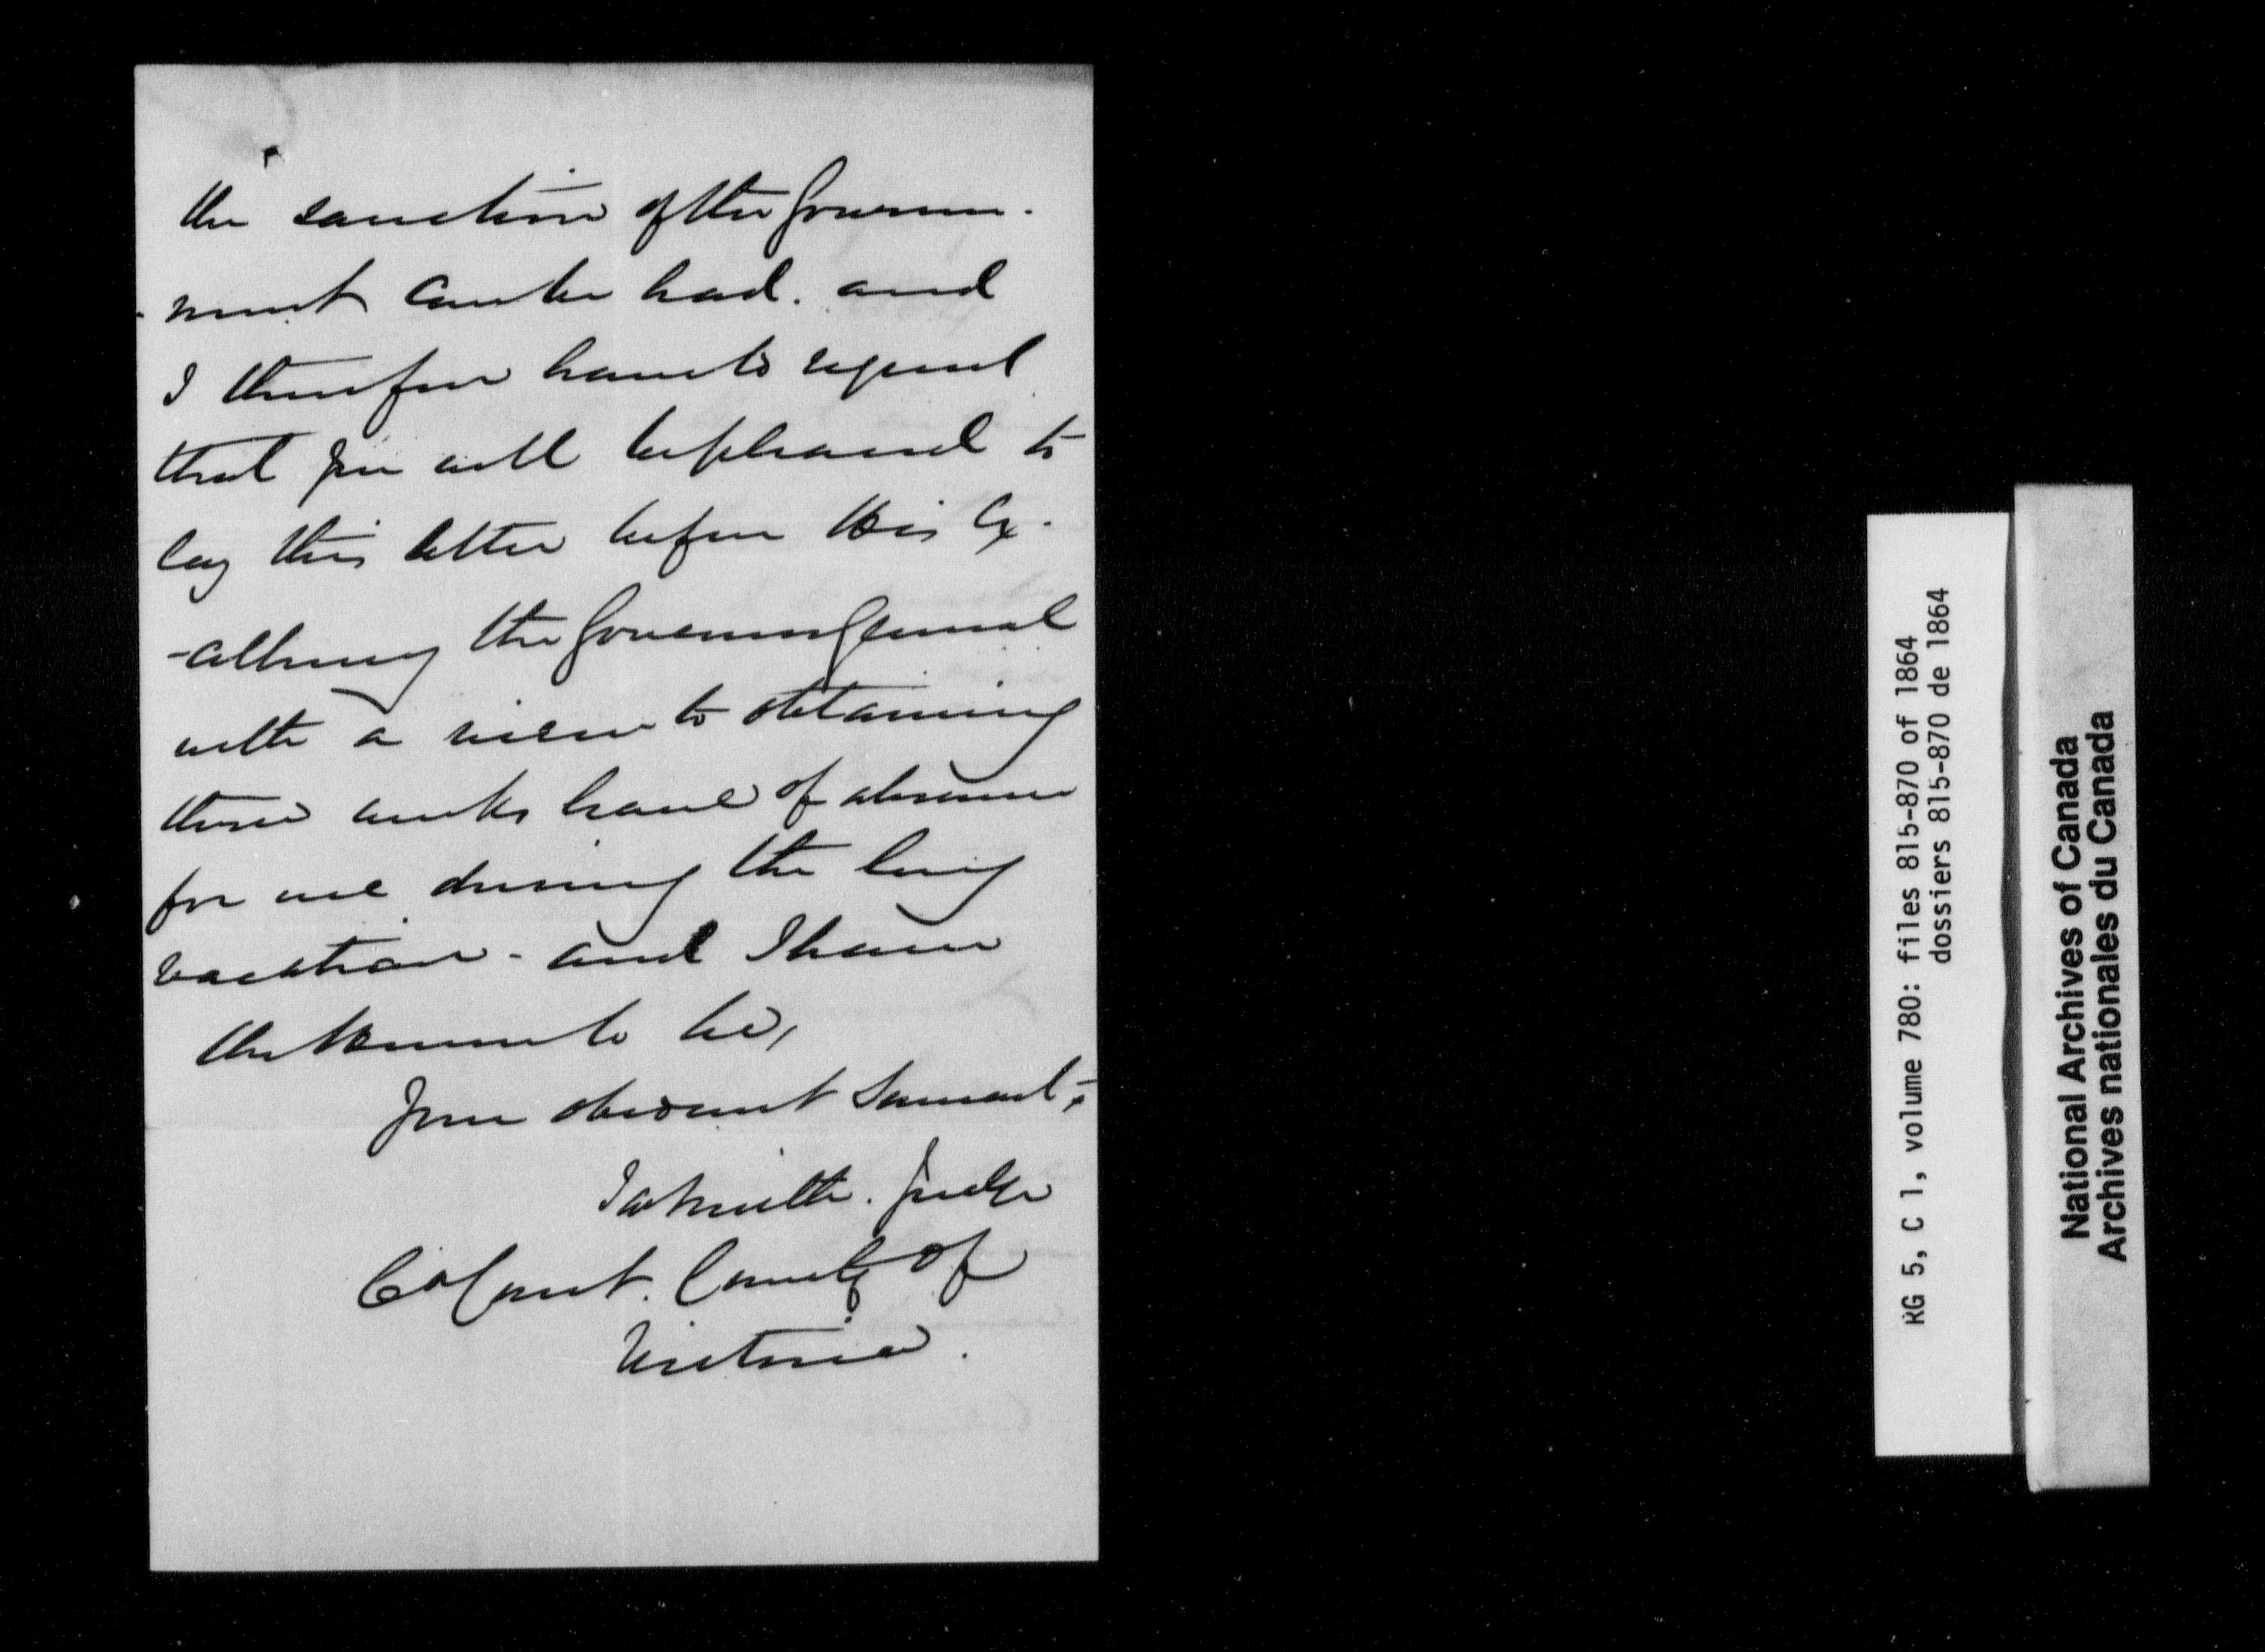 the sanction of the Govern-
-ment can be had. and
I therefore have to request
that you will be pleased to
lay this letter before His Ex-
-cellency the Governor General
with a view to obtaining
three weeks leave of absence
for me during the long
vacation - and I have
the honour to be,
Your obedient Servant,
Judge
Co Court. County of
Victoria.
RG 5, C 1, volume 780: files 815-870 of 1864
dossiers 815-870 de 1864
National Archives of Canada
Archives nationales du Canada